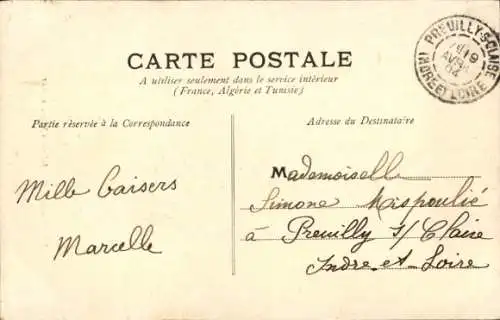 CARTE POSTALE
A utiliser seulement dans le service intérieur
(France, Algérie et Tunisie)
Partie réservée à la Correspondance
Adresse du Destinataire
Mille baisers
Marcelle
Mademoiselle
Simone Mispoulié
à Preuilly s/ Claise
Indre et Loire
PREUILLY-S-CLAISE
AVRIL
04
INDRE ET LOIRE